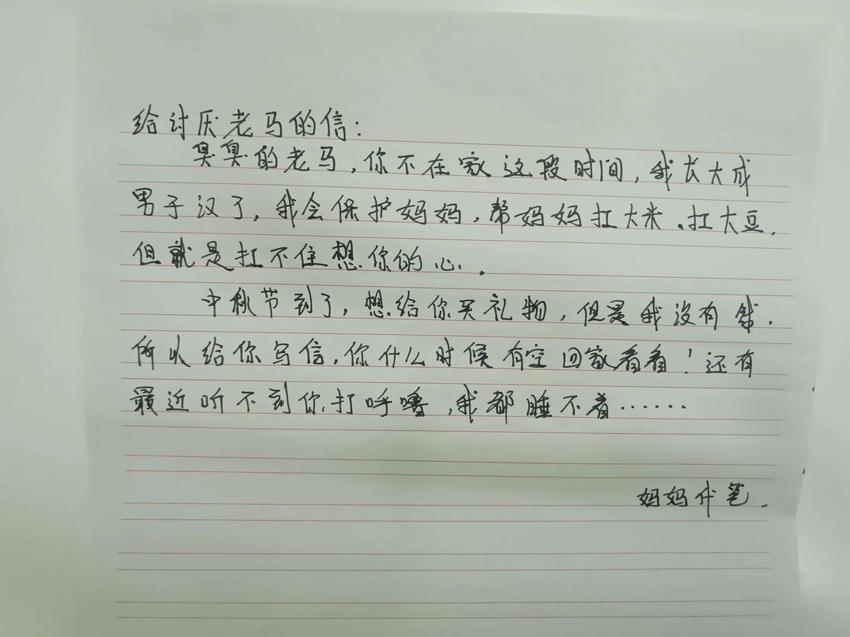 给讨厌老马的信：
臭臭的老马，你不在家这段时间，我长大成
男子汉了，我会保护妈妈，帮妈妈扛大米、扛大豆，
但就是扛不住想你的心。
中秋节到了，想给你买礼物，但是我没有钱，
所以给你写信，你什么时候有空回家看看！还有
最近听不到你打呼噜，我都睡不着……
妈妈代笔.